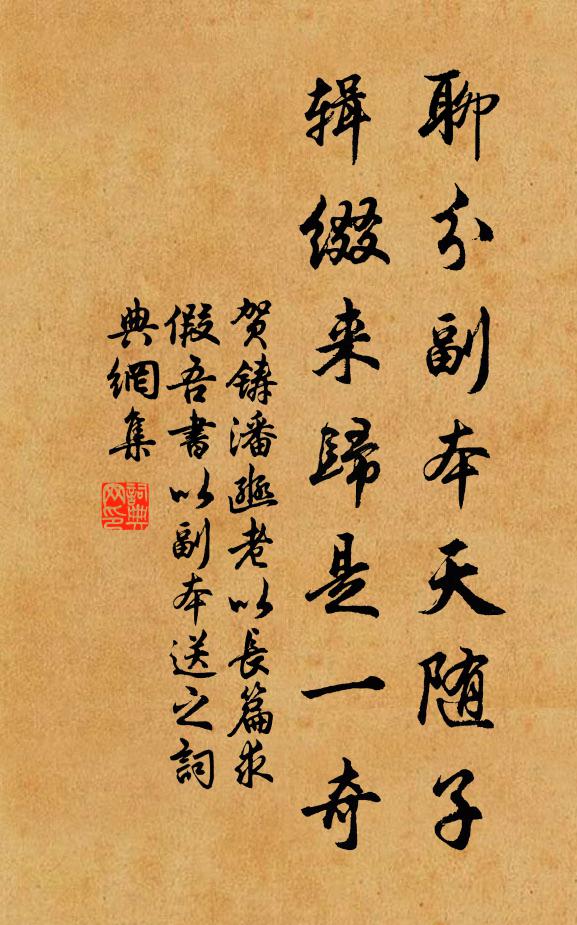 聊分副本天随子
辑缀来歸是一奇
贺鑄潘邠老以長篇求
假吾書以副本送之詞
典網集
詞典
网印